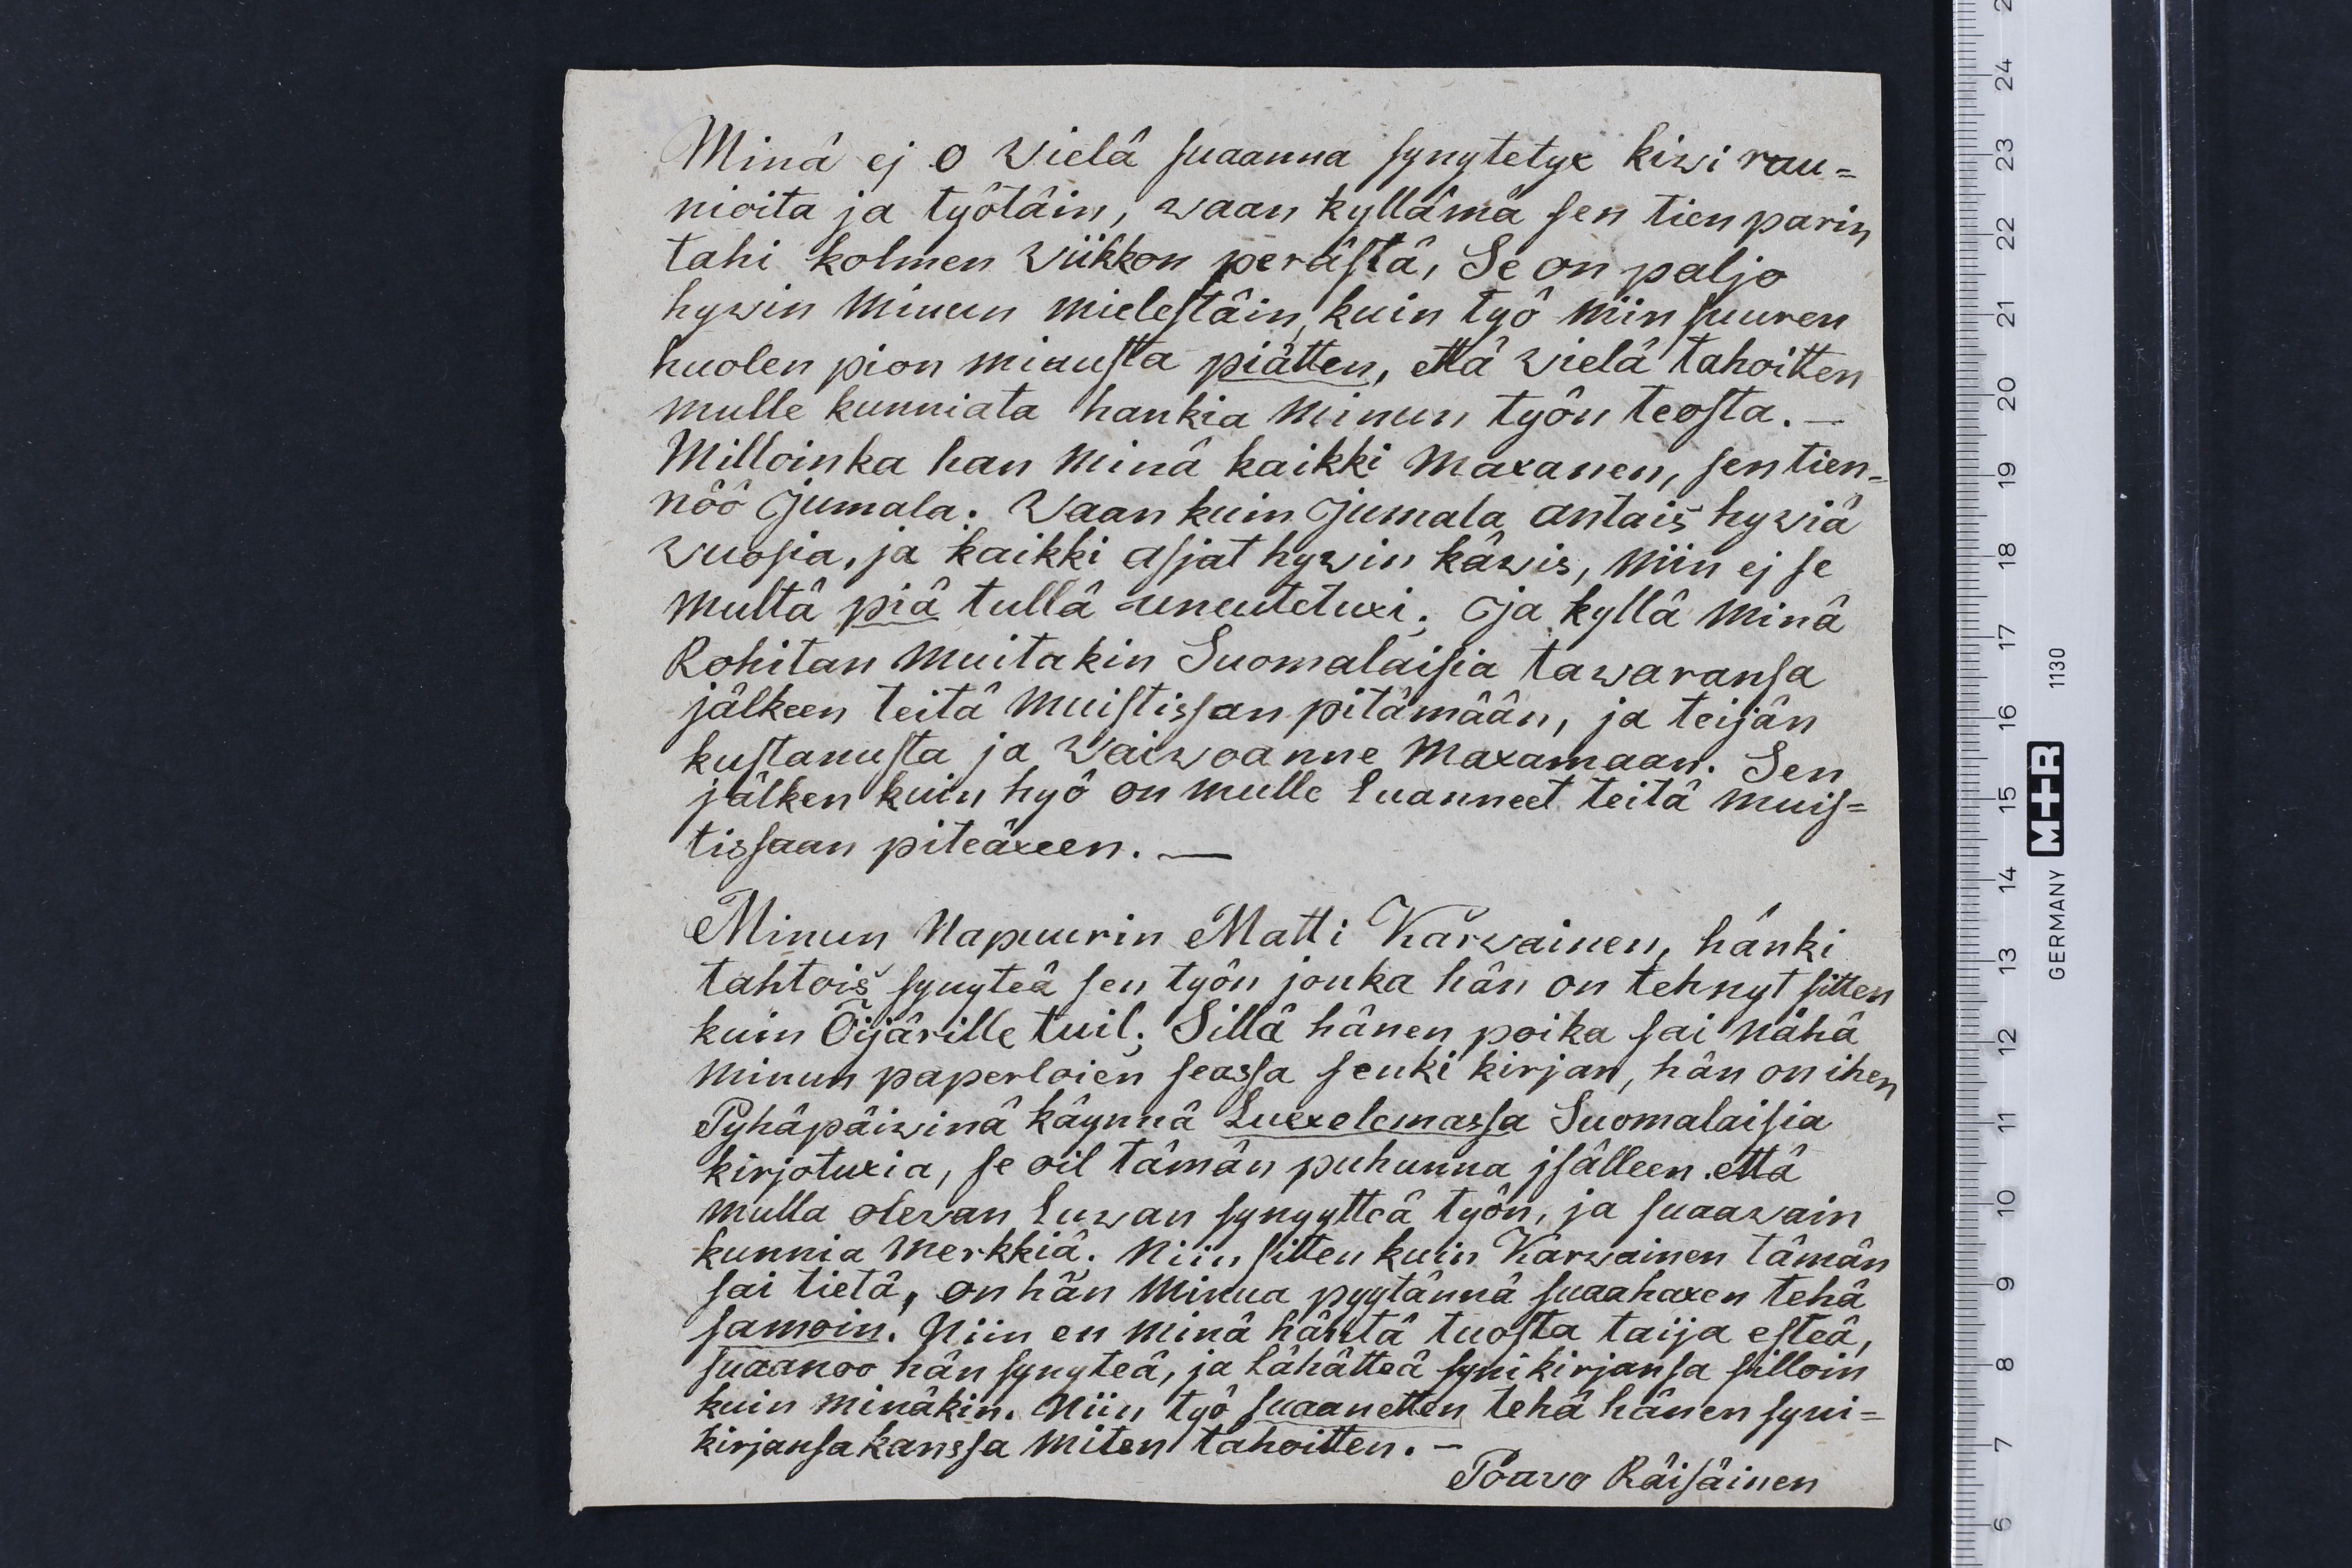 Minä ej o Vielä suaanna synytetyx kiwi rau=
nioita ja työtäin, waan kyllämä sen tien parin
tahi kolmen Viikkon perästä, Se on paljo
hywin Minun mielestäin, kuin työ Niin suuren
huolen pion minusta piätten, että Vielä tahoitten
mulle kunniata hankia Minun työn teosta. —
Milloinka han Minä kaikki Maxanen, sen tien=
nöö Jumala. Vaan kuin Jumala antais hywiä
Vuosia, ja kaikki asjat hywin käwis, Niin ej se
Multä piä tullä uneutetuxi. Ja kyllä Minä
Rohitan Muitakin Suomalaisia tawaransa
jälkeen teitä Muistissan pitämään, ja teijän
kustanusta ja Vaiwoanne Maxamaan. Sen
jälken kuin hyö on mulle luanneet teitä muis=
tissaan piteäxeen. —
Minun Napuurin Matti Karwainen, hänki
tahtois synyteä sen työn jonka hän on tehnyt sitten
kuin Öijärille tuil. Sillä hänen poika sai Nähä
Minun paperloien seassa senki kirjan, hän on ihen
Pyhäpäiwinä käynnä Luexelemassa Suomalaisia
kirjotuxia, se oil tämän puhunna jsälleen että
mulla olewan luwan synyytteä työn, ja suaawain
kunnia Merkkiä. Niin sitten kuin Karwainen tämän
sai tietä, on hän Minua pyytännä suaahaxen tehä
samoin. Niin en minä häntä tuosta taija esteä,
suaanoo hän synyteä, ja lähätteä synikirjansa silloin
kuin minäkin. Niin työ suaanetten tehä hänen syni=
kirjansa kanssa Miten tahoitten. —
Poavo Räisäinen
24
23
22
21
20
19
18
17
16
15
14
13
12
11
10
9
8
7
6
GERMANY M+R 1130